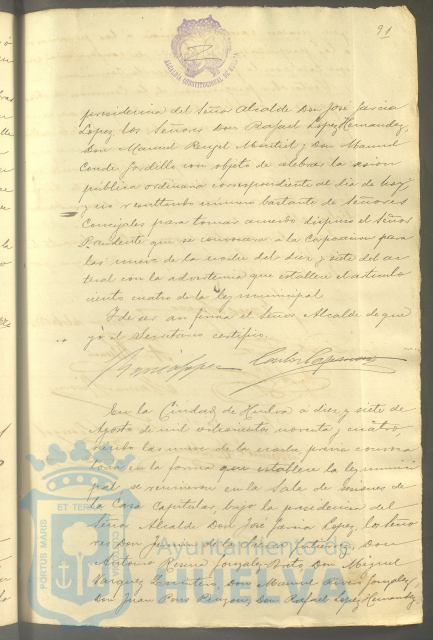 91
ALCALDIA CONSTITUCIONAL DE HUELVA
presidencia del Señor Alcalde Don José García
Lopez, los Señores Don Rafael Lopez Hernandez,
Don Manuel Rengel Montiel y Don Manuel
Conde Gordillo con objeto de celebrar la sesión
pública ordinaria correspondiente al dia de hoy
y no resultando número bastante de Señores
Concejales para tomar acuerdo dispuso el Señor
Presidente que se convocara á la Corporacion para
las nueve de la noche del diez y siete del ac-
tual con la advertencia que establece el articulo
ciento cuatro de la ley municipal.
Y de ser asi firma el Señor Alcalde de que
yo el Secretario certifico.
En la Ciudad de Huelva á diez y siete de
Agosto de mil ochocientos noventa y cuatro,
siendo las nueve de la noche, previa convoca-
toria en la forma que establece la ley munici-
pal se reunieron en la Sala de sesiones de
la Casa Capitular, bajo la presidencia del
Señor Alcalde Don José Garcia Lopez, los Seño-
res Don de la Don
Antonio Gonzalez Don Miguel
Vazquez Don Manuel Gonzalez,
Don Juan Pons Don Rafael Lopez Hernandez
ET TERRÆ
PORTUS MARIS
Ayuntamiento de
HUELVA